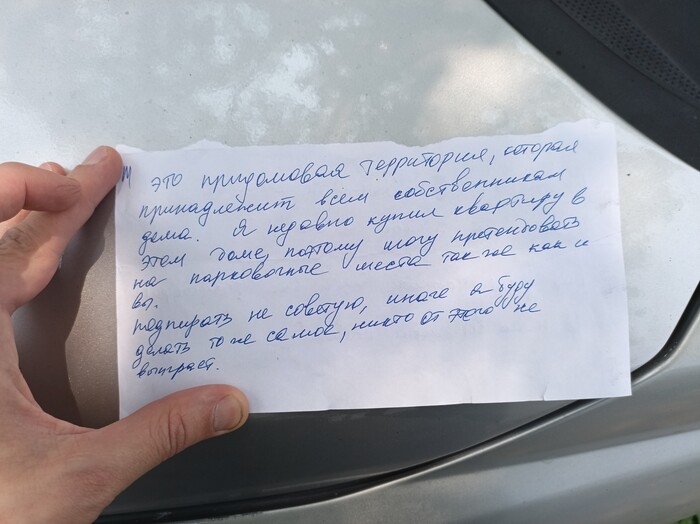 это придомовая территория, которая
принадлежит всем собственникам
дома. Я недавно купил квартиру в
этом доме, поэтому могу претендовать
на парковочные места так же как и
вы.
подпирать не советую, иначе я буду
делать то же самое, никто от этого не
выиграет.